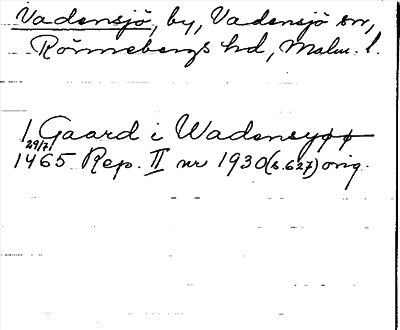 Vadensjö, by, Vadensjö sn,
Rönnebergs hd, Malm. l.
1 Gaard i Wadensyøø
29/7
1465 Rep. II nr 1930 (s. 627) orig.